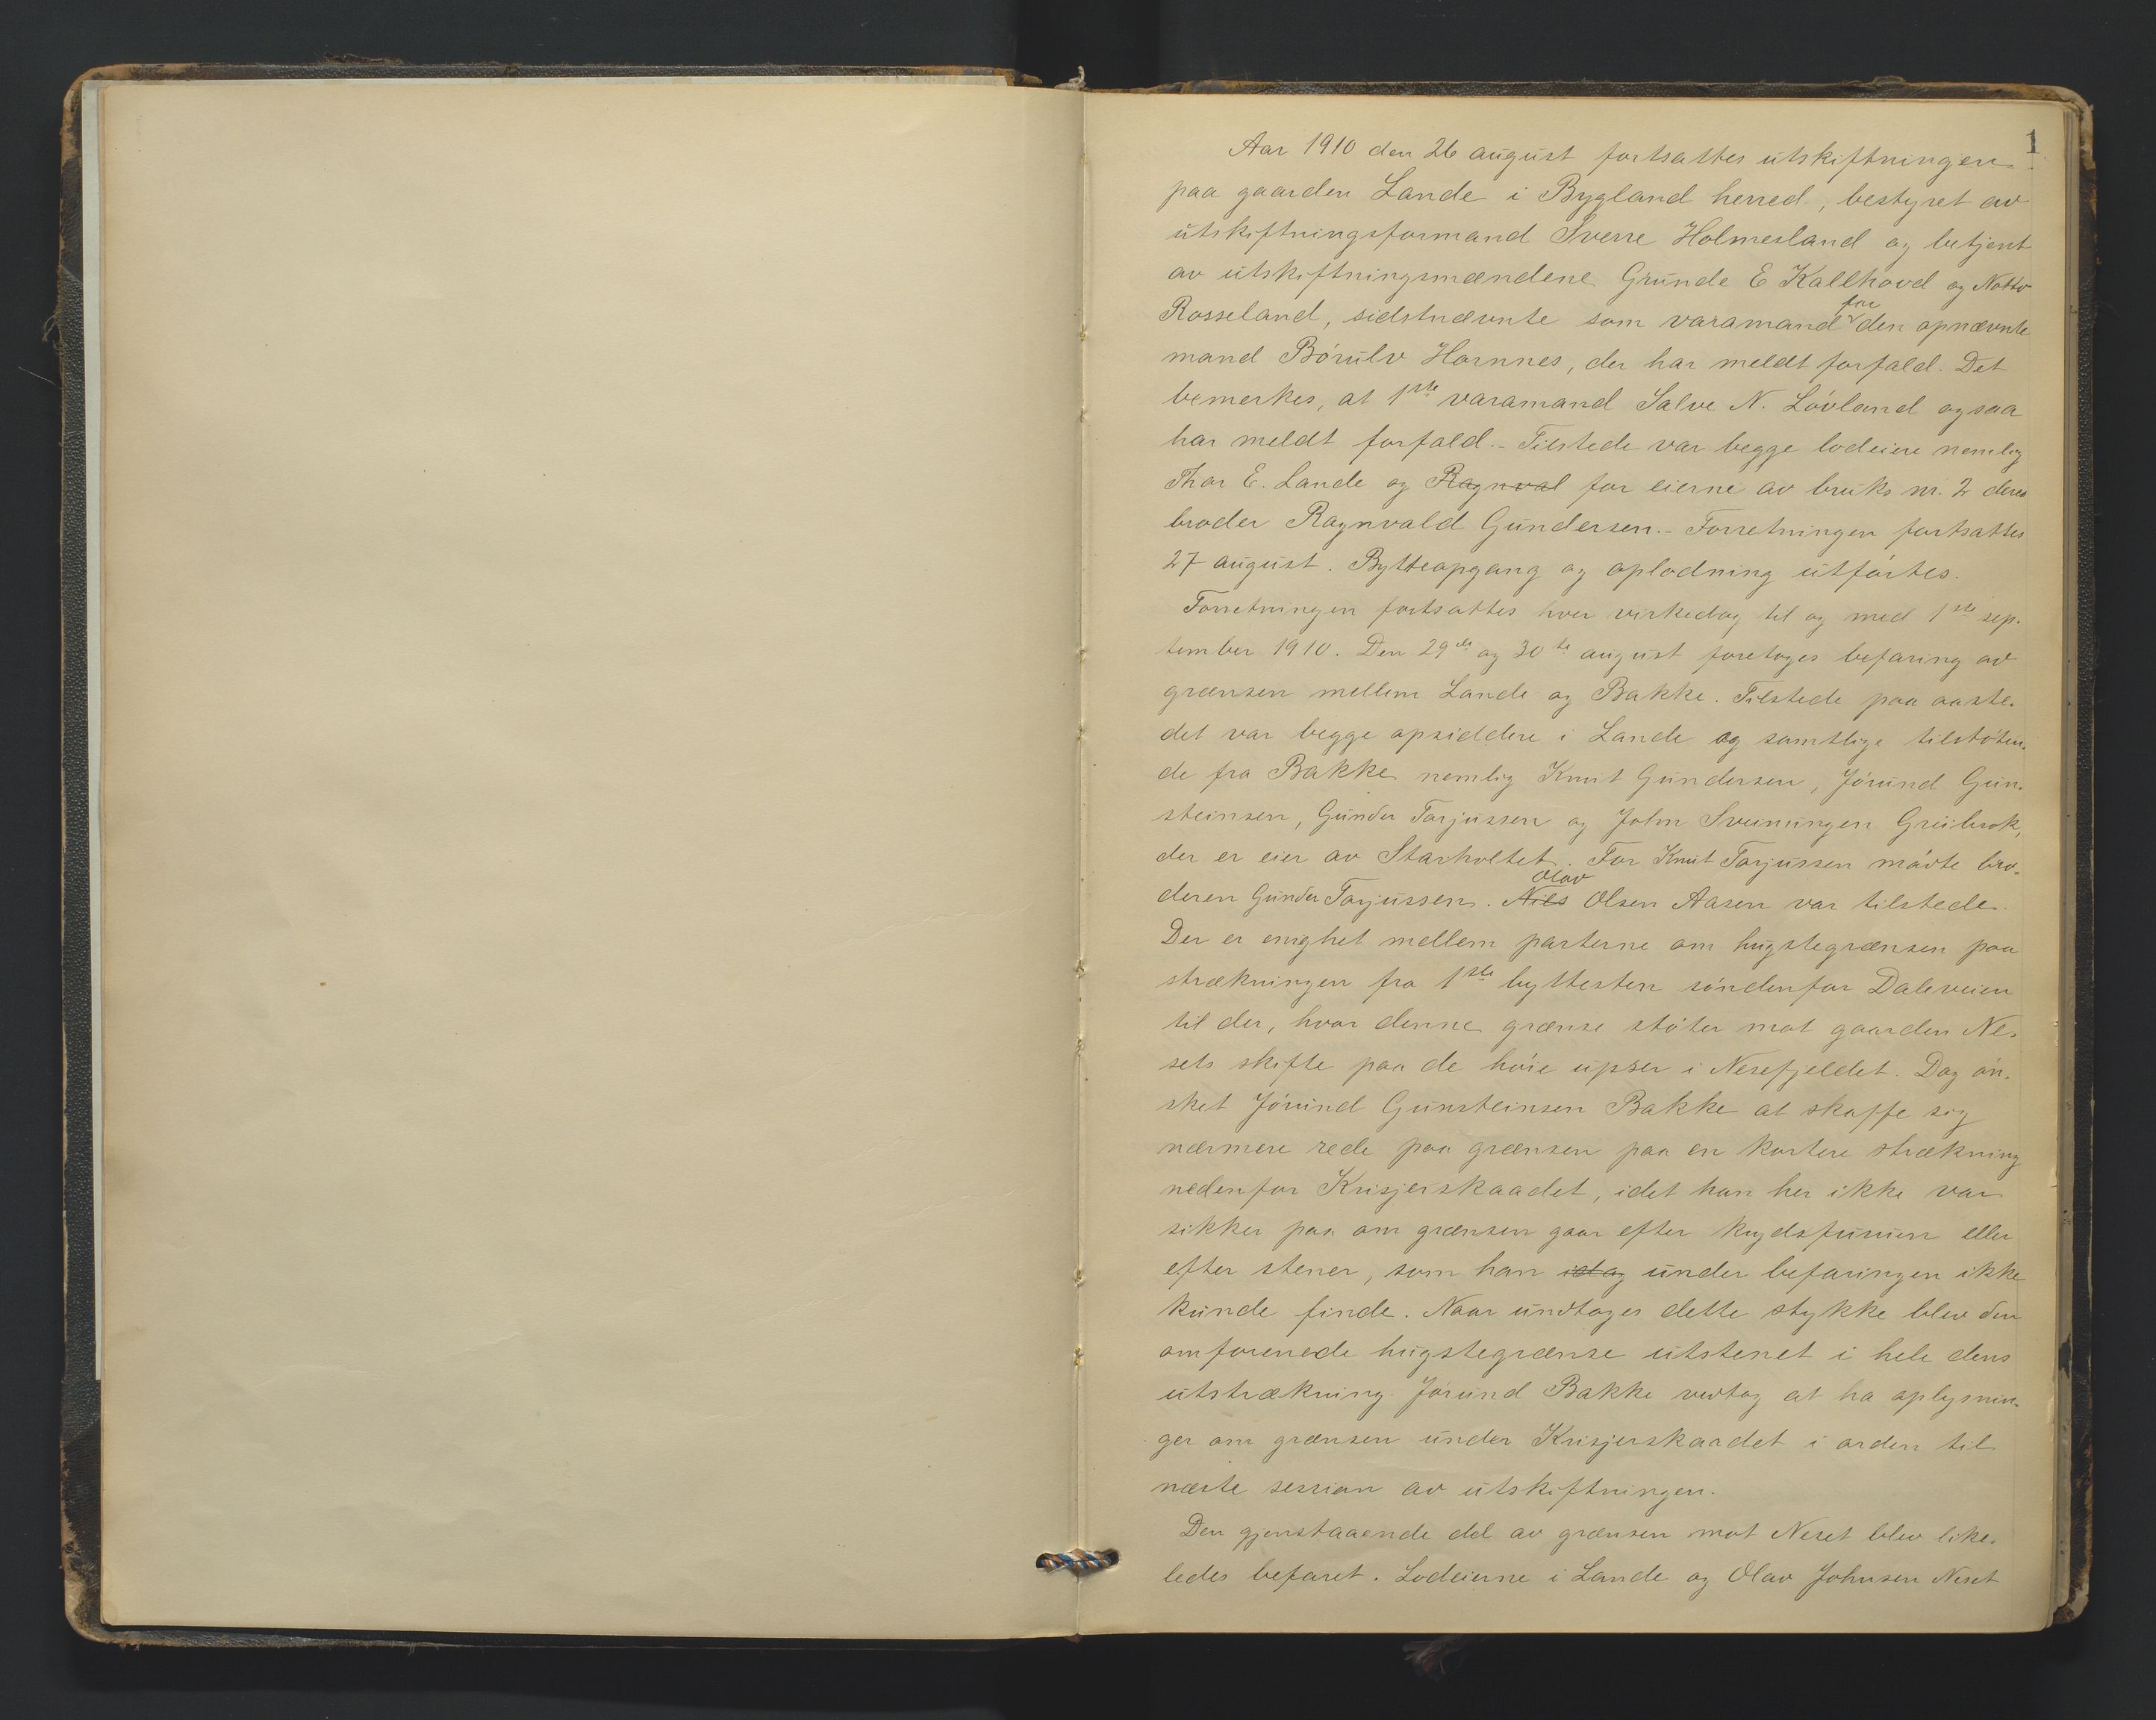 1
Aar 1910 den 26 august fortsattes utskiftningen
paa gaarden Lande i Bygland herred, bestyret av
utskiftningsformand Sverre Holmesland og betjent
av utskiftningsmændene Grunde E Kallhovd og Notto
Rosseland, sidstnævnte som varamand for den opnævnte
mand Börulv Hornnes, der har meldt forfald. Det
bemerkes, at 1ste varamand Salve N. Lövland ogsaa
har meldt forfald. - Tilstede var begge lodeiere nemlig
Thor E. Lande og Ragnval for eierne av bruks nr. 2 deres
broder Ragnvald Gundersen. - Forretningen fortsattes
27 august. Bytteopgang og oplodning utförtes.
Forretningen fortsattes hver virkedag til og med 1ste sep-
tember 1910. Den 29de og 30te august foretoges befaring av
grænsen mellem Lande og Bakke. Tilstede paa aaste-
det var begge opsiddere i Lande og samtlige tilstöten-
de fra Bakke nemlig Knut Gundersen, Jörund Gun-
steinsen, Gunder Tarjussen og John Sveinungen
der er eier av Starholtet. For Knut Tarjussen mödte bro-
deren Gunder Tarjussen. Nils Olav Olsen Aasen var tilstede.
Der er enighet mellem parterne om hugstegrænsen paa
strækningen fra 1ste byttesten söndenfor Daleveien
til der, hvor denne grænse stöter mot gaarden Ne-
sets skifte paa de höie upser i Nesefjeldet. Dog ön-
sket Jörund Gunsteinsen Bakke at skaffe sig
nærmere rede paa grænsen paa en kortere strækning
nedenfor Krisjerskaadet, idet han her ikke var
sikker paa om grænsen gaar efter krydsfuruer eller
efter stener, som han idag under befaringen ikke
kunde finde. Naar undtages dette stykke blev den
omforenede hugstegrænse utstenet i hele dens
utstrækning. Jörund Bakke vedtog at ha oplysnin-
ger om grænsen under Krisjerskaadet i orden til
næste session av utskiftningen.
Den gjenstaaende del av grænsen mot Neset blev like-
ledes befaret. Lodeierne i Lande og Olav Johnsen Neset